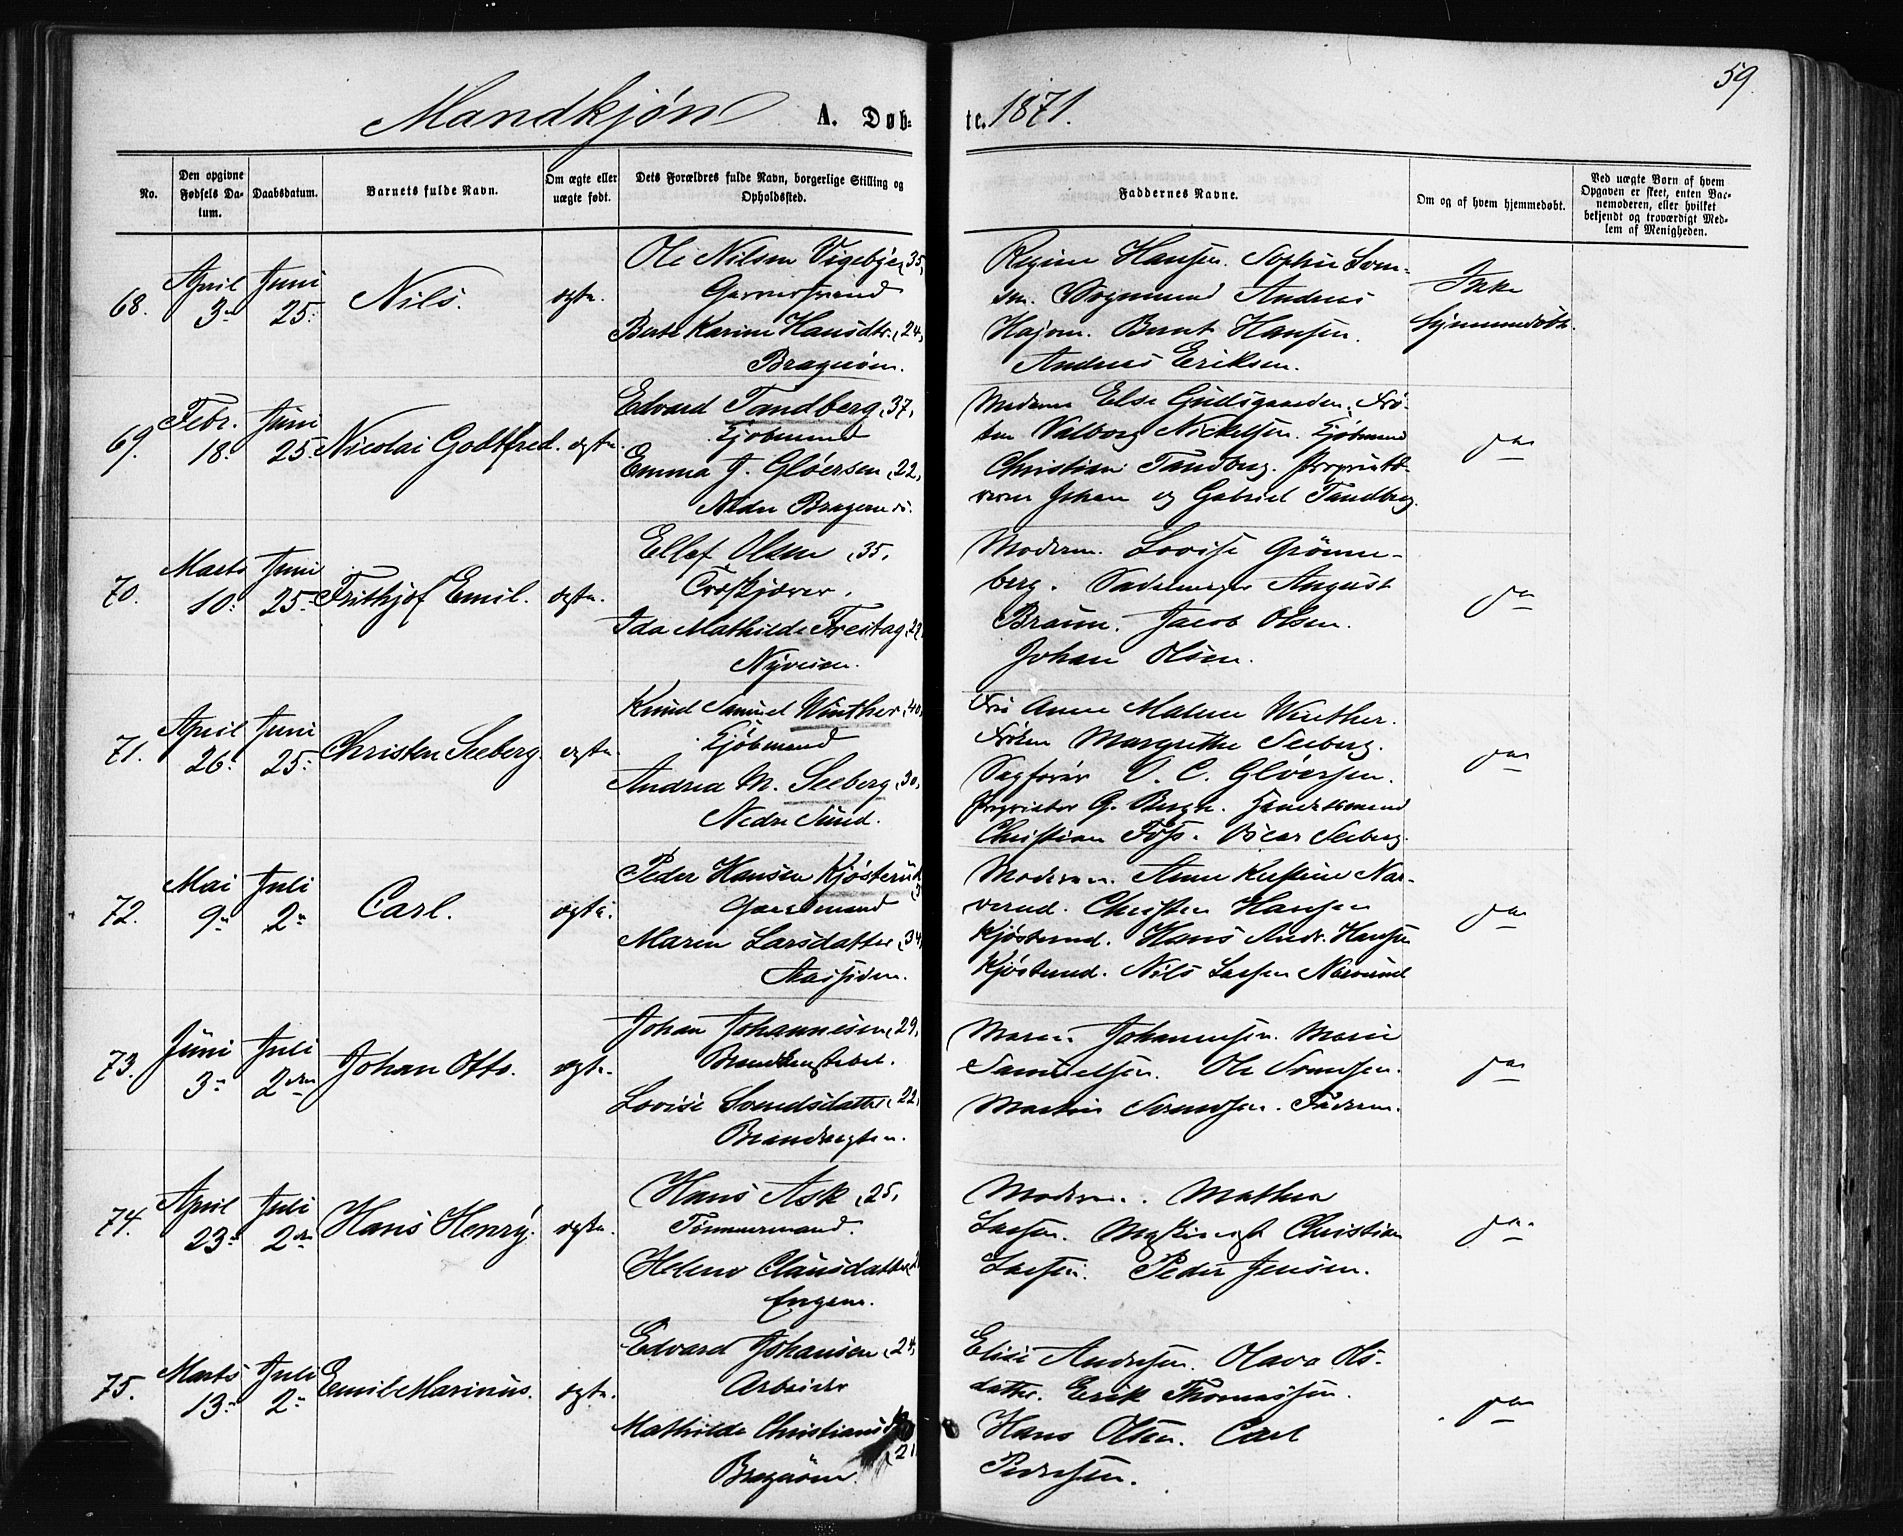 59.
Mandkjøn A. Døb-
te. 1871.
No.
Den opgivne Fødsels Da-
tum.
Daabsdatum.
Barnets fulde Navn.
Om ægte eller
uægte født.
Dets Forældres fulde Navn, borgerlige Stilling og
Opholdssted.
Faddernes Navne.
Om og af hvem hjemmedøbt.
Ved uægte Børn af hvem
Opgaven er skeet, enten Bar-
nemoderen, eller hvilket
bekjendt og troværdigt Med-
lem af Menigheden.
68.
April
3
Juni
25.
Nils.
ægte.
Ole Nilsen 35,
Berte Karine Hansdtr. 24,
Bragerøen.
Regine Hansen. Sophie Sven-
sen. Andreas
Bernt Hansen.
Andreas Eriksen.
Ikke
hjemmedøbt.
69.
Febr.
18.
Juni
25.
Nicolai Godtfred.
ægte.
Edvard Tandberg, 37,
Kjøbmand
Emma J. Gløersen, 22,
Nedre Bragernæs.
Madame Else Gulsgaarden. Frø-
ken Valborg Nickelsen. Kjøbmand
Christian Tandberg. Proprietæ-
rerne Johan og Gabriel Tandberg.
70.
Marts
10.
Juni
25.
Frithjof Emil.
ægte.
Ellef Olsen, 35,
Ida Mathilde Freitag,
Nyveien.
Moderen. Lovise Grønne-
berg. Sadelmager August
Braun. Jacob Olsen.
Johan Olsen.
71.
April
26.
Juni
25.
Christen Seeberg.
ægte.
Knud Samuel Winther, 40,
Kjøbmand
Andrea M. Seeberg, 30,
Nedre Sund.
Fru Anne Malene Winther.
Frøken Margrethe Seeberg.
Sagfører O. C. Gløersen.
Proprietær G. Bergh. Handelsmand
Christian Foss. Oscar Seeberg.
72.
Mai
9
Juli
2
Carl.
ægte.
Peder Hansen Kjøsterud
Gaardmand
Maren Larsdatter, 34,
Aassiden.
Moderen. Anne Kirstine Nar-
verud. Christen Hansen
Kjøsterud. Hans Andr. Hansen
Kjøsterud. Nils Larsen Narverud
73.
Juni
3
Juli
2den
Johan Otto.
ægte.
Johan Johannesen, 29,
Lovise Svendsdatter, 22,
Brandvagten.
Maren Johannesen. Marie
Samuelsen. Ole Svendsen.
Martin Svendsen. Faderen.
74.
April
23
Juli
2den
Hans Henry.
ægte.
Hans Ask, 25,
Tømmermand.
Helene Clausdatter,
Engene.
Moderen. Mathea
Larsen. Christian
Larsen. Peder Jensen.
75.
Marts
13
Juli
2
Emil Marinus.
ægte.
Edvard Johansen, 24,
Arbeider
Mathilde Christians
21.
Bragerøen.
Elise Andersen. Olava Ols-
datter. Erik Thomassen.
Hans Olsen. Carl
Pedersen.